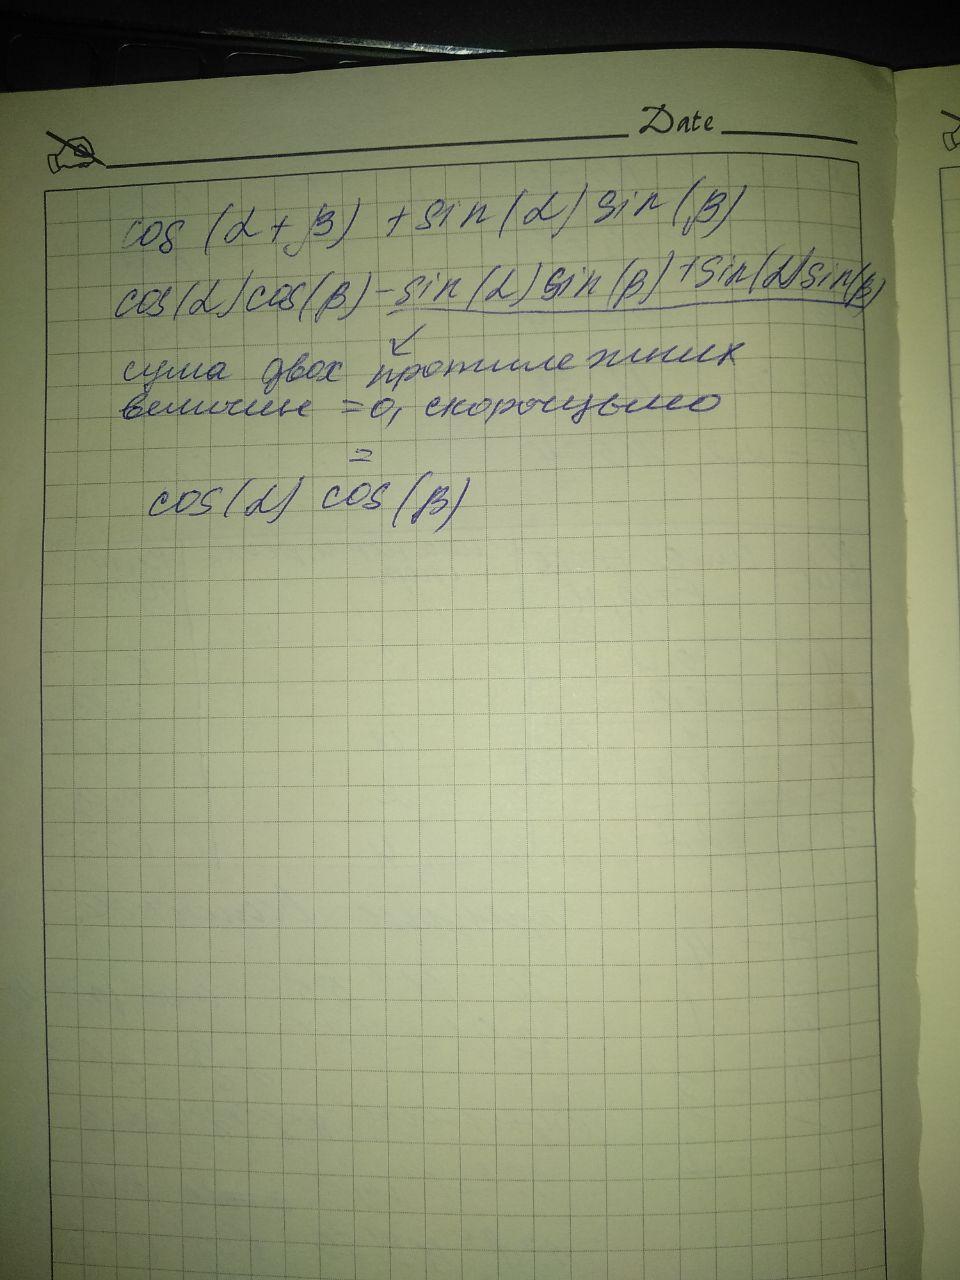 Date
cos (α + β) + sin (α) sin (β)
cos(α) cos(β) - sin (α) sin (β) + sin(α) sin(β)
сума двох протилежних
величин = 0, скорочуємо
=
cos(α) cos (β)